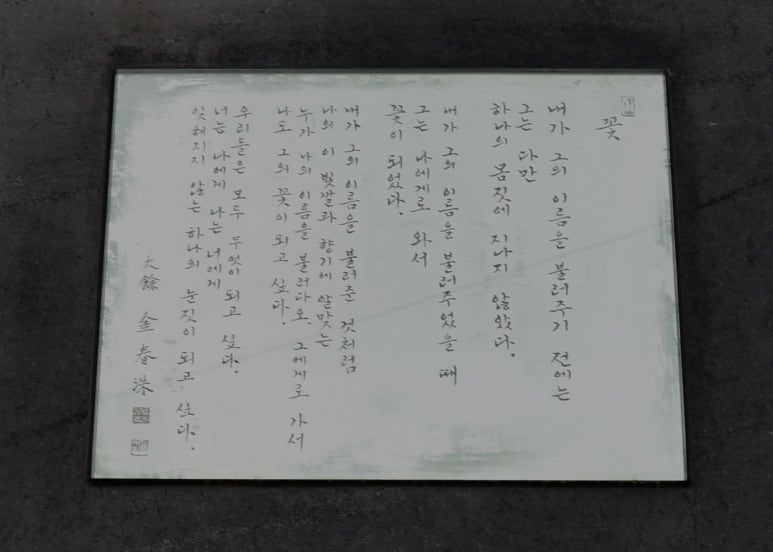 꽃
내가 그의 이름을 불러주기 전에는
그는 다만
하나의 몸짓에 지나지 않았다.
내가 그의 이름을 불러주었을 때
그는 나에게로 와서
꽃이 되었다.
내가 그의 이름을 불러준 것처럼
나의 이 빛깔과 향기에 알맞는
누가 나의 이름을 불러다오 그에게로 가서
나도 그의 꽃이 되고 싶다.
우리들은 모두 무엇이 되고 싶다.
너는 나에게 나는 너에게
잊혀지지 않는 하나의 눈짓이 되고 싶다.
大餘 金春洙